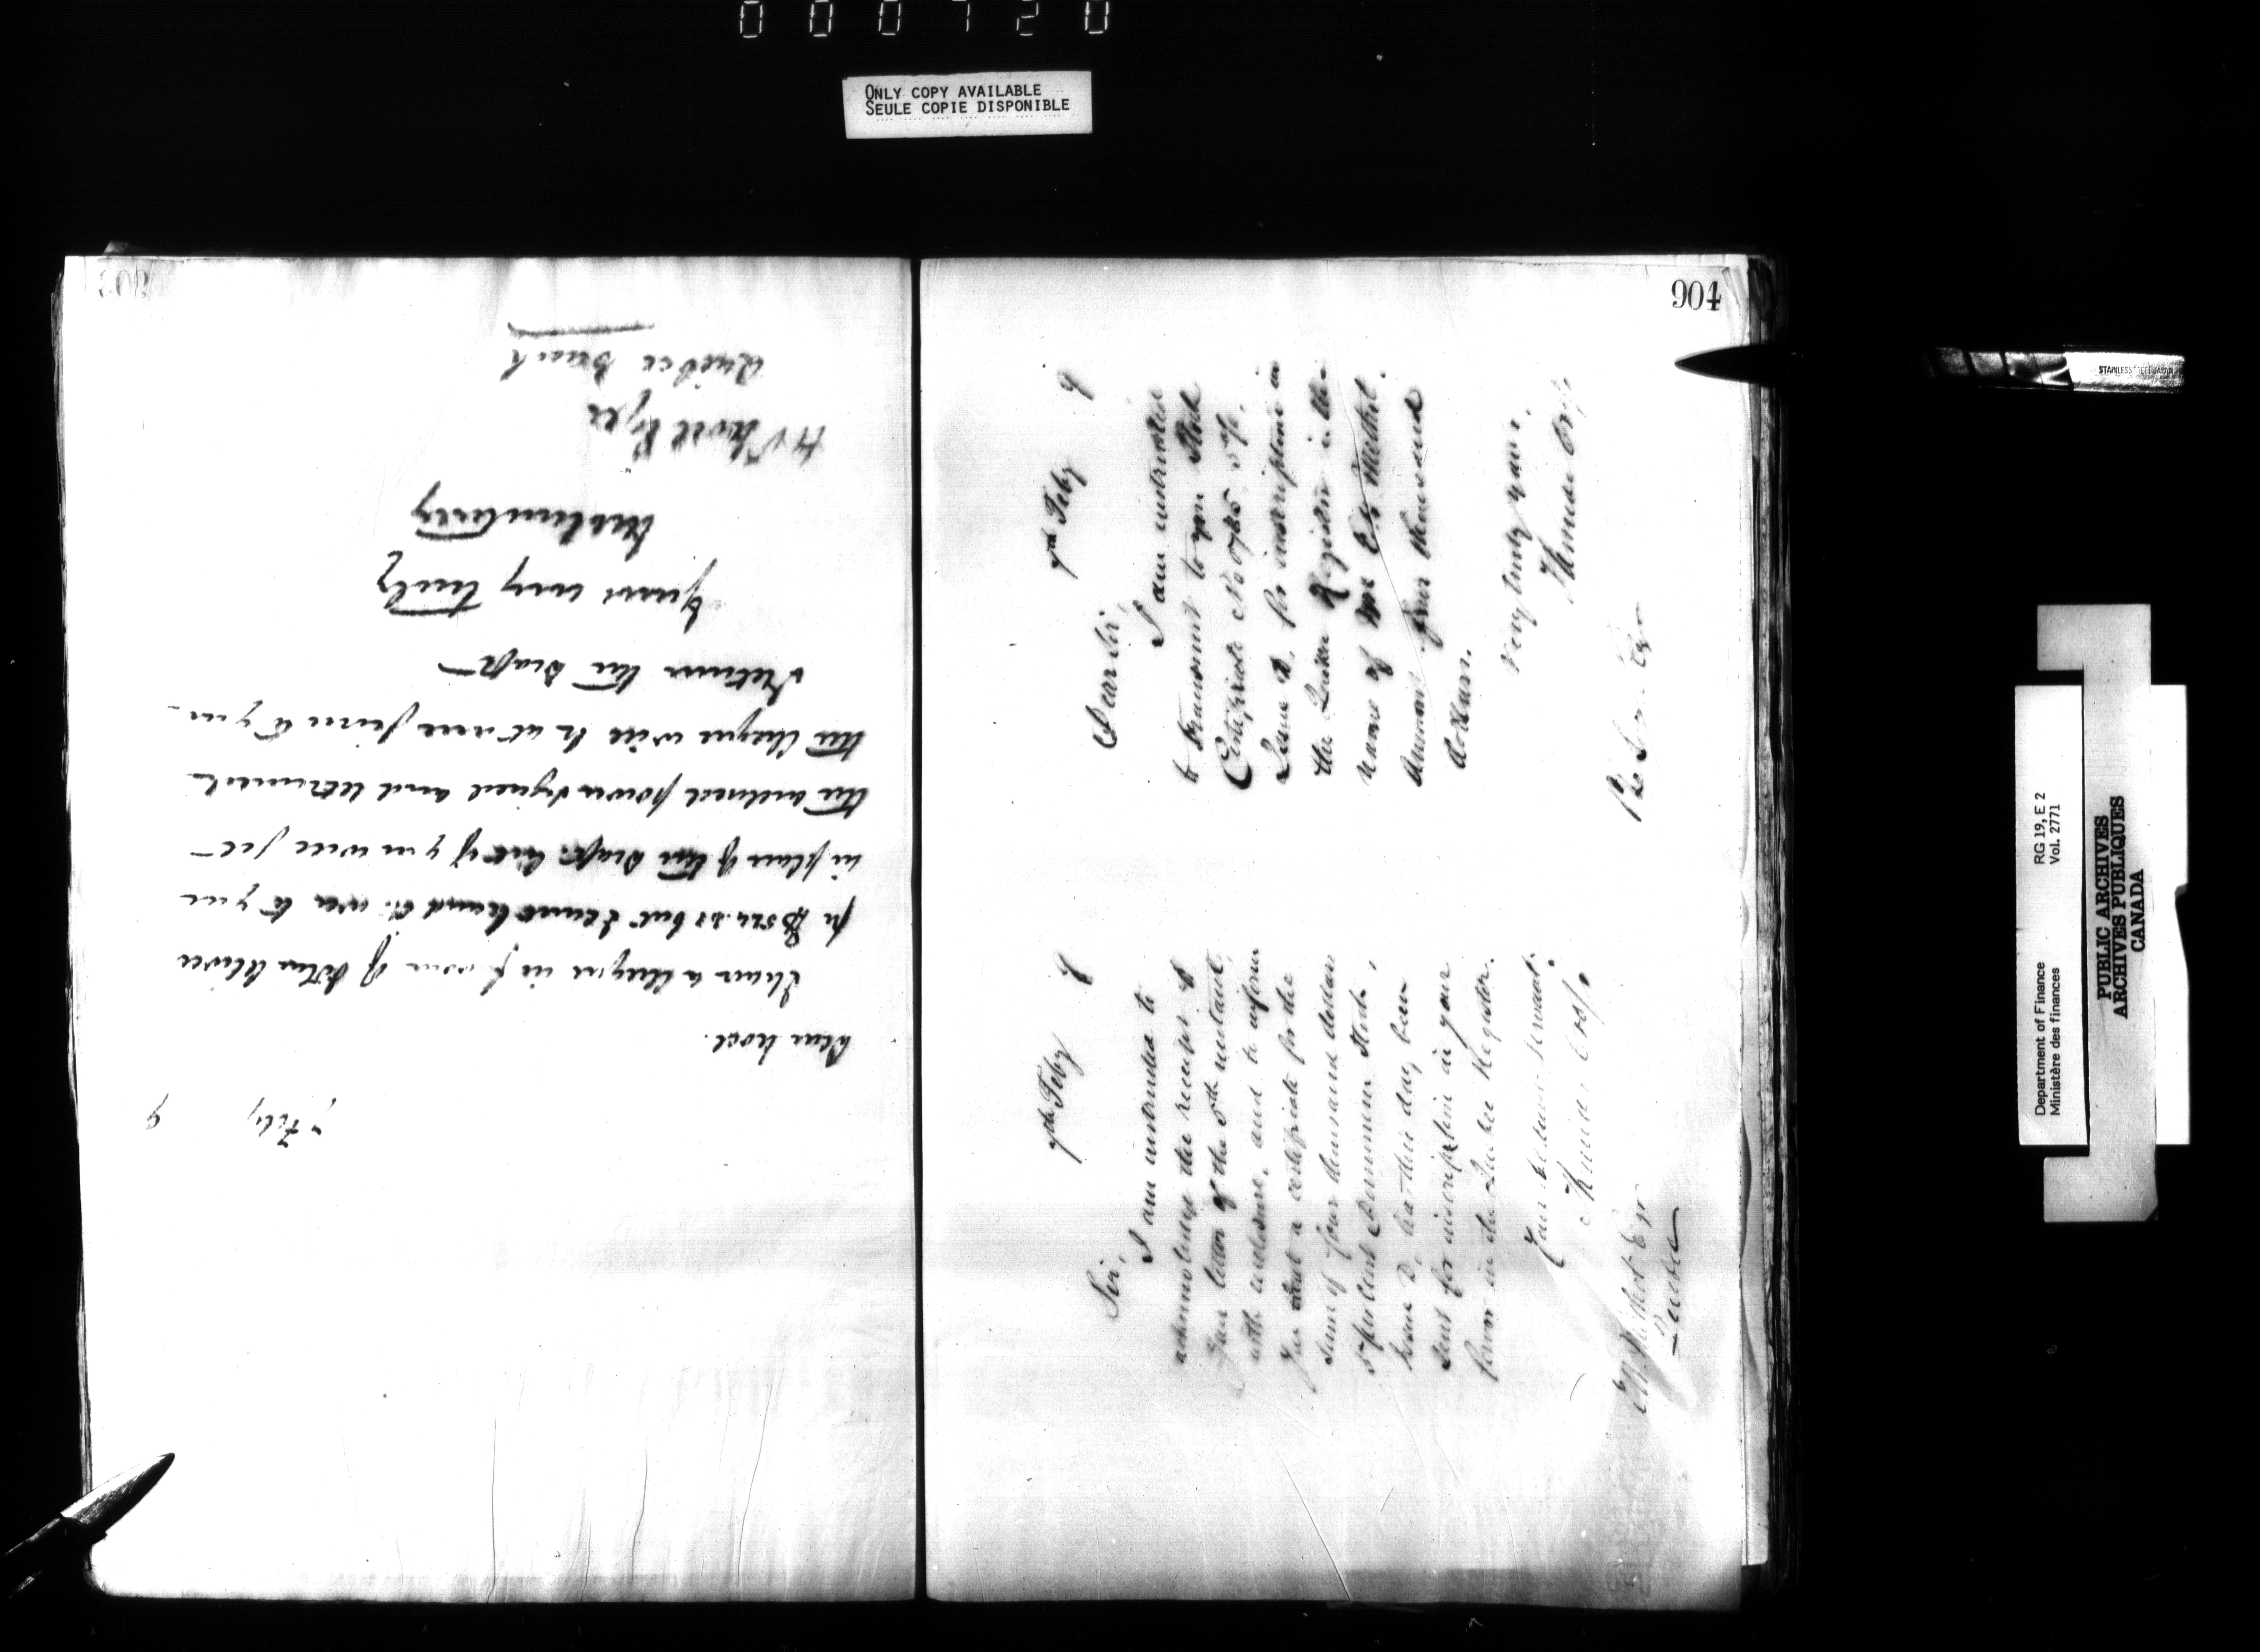 000720
ONLY COPY AVAILABLE
SEULE COPIE DISPONIBLE
7 Feby 9
Dear Noel.
I have a cheque in favor of
for $ but I cannot hand it over to you
in place of the Draft. But if you will get
the enclosed power signed and
the cheque will be at once given to you
return the Draft
Yours very truly
H Noel Esqre
Quebec Bank
904
7th Feby 9
Sir,
I am instructed to
acknowledge the receipt of
your letter of the 5th instant,
with enclosure, and to inform
you that a certificate for the
sum of four thousand dollars
5 per cent Dominion Stock,
Issue D, has this day been
sent for inscription in your
favor in the Quebec Register.
Your obedient servant.
Esqr
Quebec
7th Feby 9
Dear Sir,
I am instructed
to transmit to you Stock
Certificate No 0785 5%,
Issue D, for inscription in
the Quebec Register in the
name of
Amount four thousand
dollars.
Very truly yours,
Esqr
STAINLESS STEEL JAPAN
Department of Finance RG 19, E 2
Ministère des finances Vol. 2771
PUBLIC ARCHIVES
ARCHIVES PUBLIQUES
CANADA